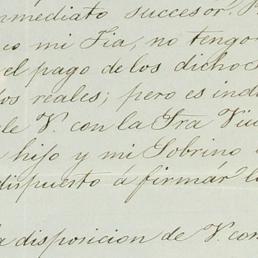 nmediato succesor.
mi Tia, no tengo
el pago de los dichos
los reales; pero es indi
de V. con la Sra Viu
hijo y mi Sobrino
dispuesto á firmar l
la disposicion de V. con